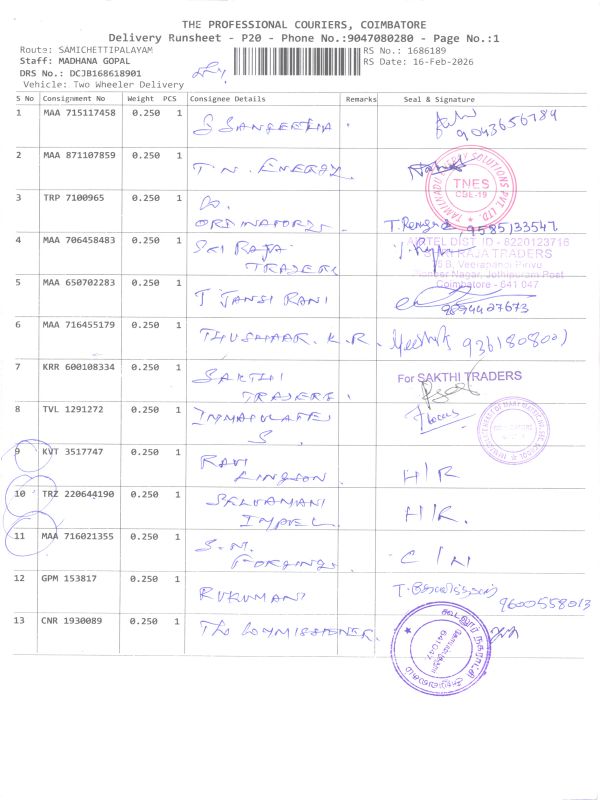 THE PROFESSIONAL COURIERS, COIMBATORE
Delivery Runsheet - P20 - Phone No.:9047080280 - Page No.:1
Route: SAMICHETTIPALAYAM
RS No.: 1686189
Staff: MADHANA GOPAL
RS Date: 16-Feb-2026
DRS No.: DCJB168618901
Vehicle: Two Wheeler Delivery
S No Consignment No Weight PCS Consignee Details Remarks Seal & Signature
1 MAA 715117458 0.250 1 S SANGEETHA
9043656789
2 MAA 871107859 0.250 1 T.N. ENERGY
TAMILNADU ENERGY SOLUTIONS PVT. LTD
TNES
CBE-19
3 TRP 7100965 0.250 1 Do.
9585733547
4 MAA 706458483 0.250 1 SRI RAJA
TRADERS
AIRTEL DIST. ID - 8220123716
SRI RAJA TRADERS
Pioneer Nagar, Jothipuram Post
Coimbatore - 641 047
5 MAA 650702283 0.250 1 T JANSI RANI
9894427673
6 MAA 716455179 0.250 1 THUSHAAR. K.R.
7 KRR 600108334 0.250 1 SAKTHI
TRADERS
For SAKTHI TRADERS
8 TVL 1291272 0.250 1 IMMACULATE
S.
9 KVT 3517747 0.250 1 RAVI
LINGSON
H/R
10 TRZ 220644190 0.250 1 SELVAMANI
IMPEL
H/R.
11 MAA 716021355 0.250 1 S.M.
FORGING.
C/N
12 GPM 153817 0.250 1 RUKUMANI
9600558013
13 CNR 1930089 0.250 1 THE COMMISSIONER.
641047